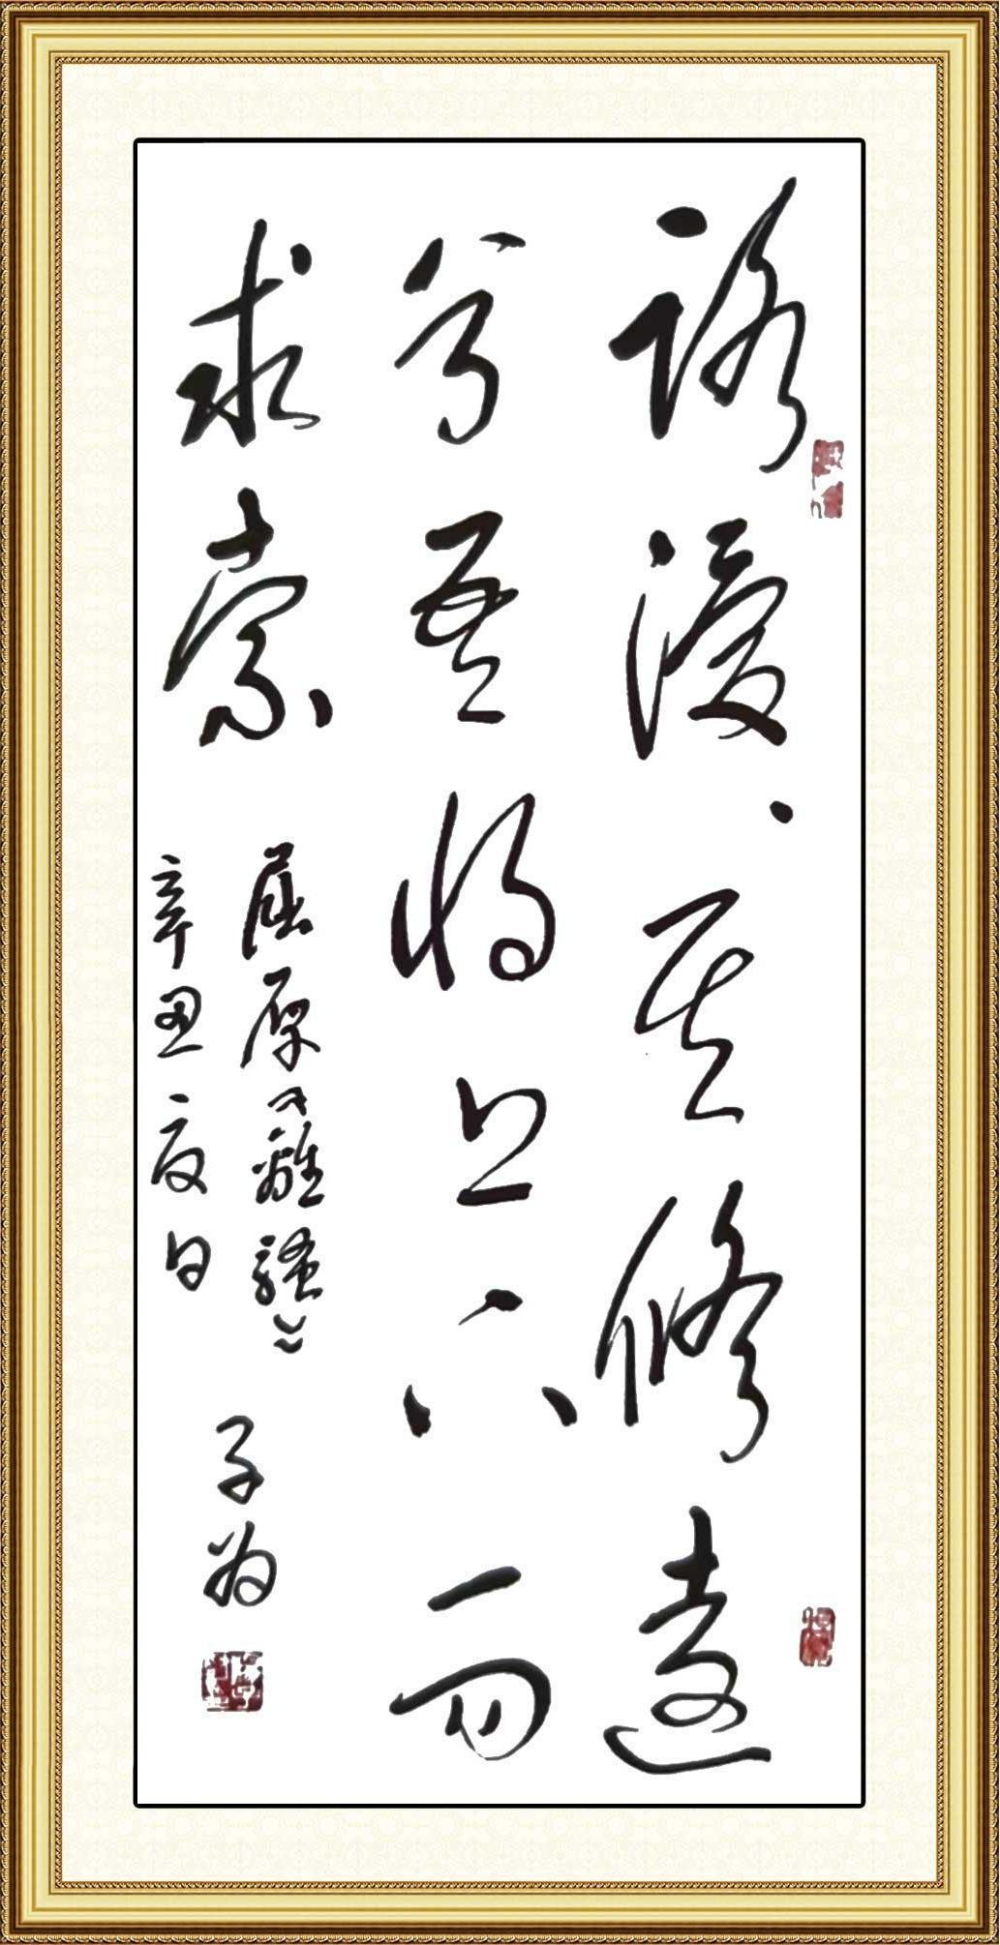 路漫漫其修遠
兮吾將上下而
求索
屈原《離騷》
辛丑夏日
子为